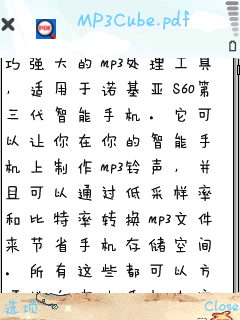 MP3Cube.pdf
PDF
巧强大的MP3处理工具
，适用于诺基亚S60第
三代智能手机。它可
以让你在你的智能手
机上制作MP3铃声，并
且可以通过低采样率
和比特率转换MP3文件
来节省手机存储空间
。所有这些都可以方
选项
Close